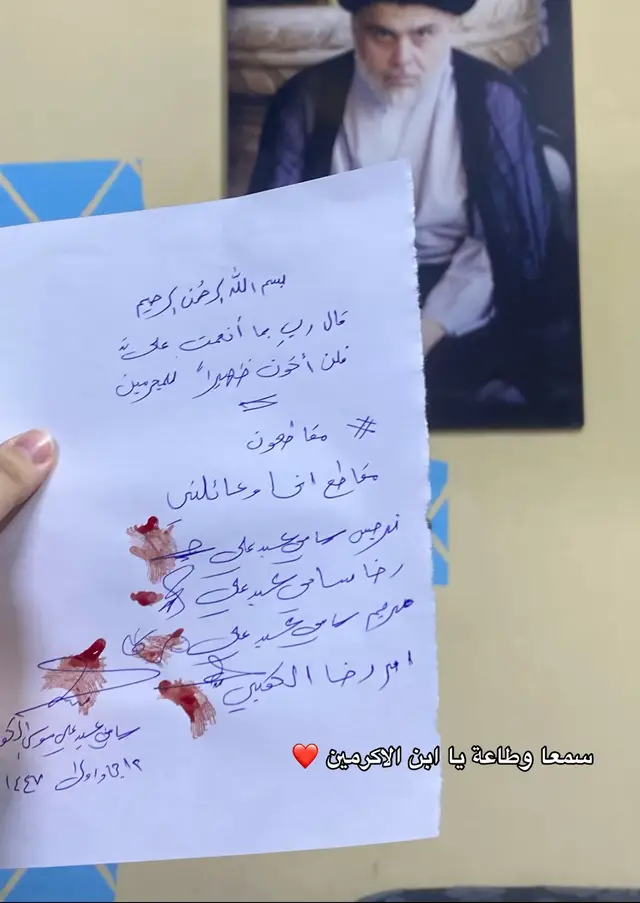 بسم الله الرحمن الرحيم
قال ربِ بما أنعمت عليَّ
فلن أكون ظهيراً للمجرمين
# مقاطعون
مقاطع انا وعائلتي
نرجس سامي عبد علي
رضا سامي عبد علي
مريم سامي عبد علي
ام رضا الكعبي
سامي عبد علي موسى
١٤٤٧
سمعا وطاعة يا ابن الاكرمين ❤️